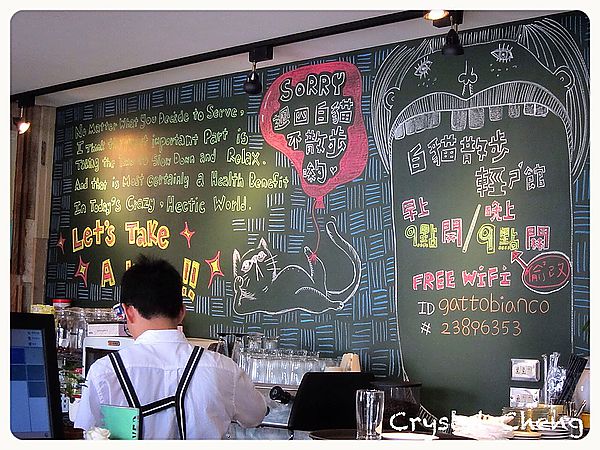 No Matter What You Decide to Serve,
I Think The Most important Part is
Taking the Time to Slow Down and Relax.
And that is Most Certainly a Health Benefit
In Today's Crazy, Hectic World.
Let's Take
A
!!
SORRY
週四白貓
不散步
喲
白貓散步
輕食館
早上
9點開
/
晚上
9點關
偷改
FREE WiFi
ID gattobianco
# 23896353
Crystal Cheng